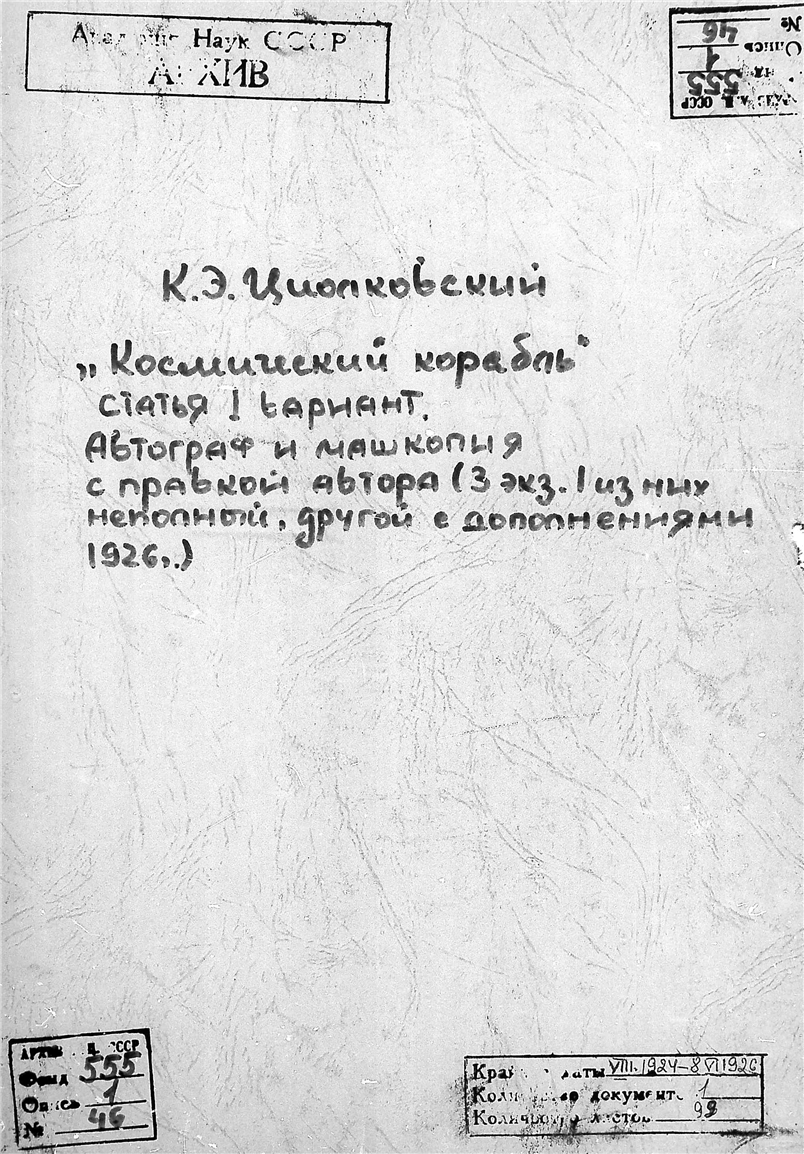 Академия Наук СССР
АРХИВ
АРХИВ А.Н. СССР
Фонд 555
Опись 1
№ 46
К.Э. Циолковский
„Космический корабль"
статья I вариант.
Автограф и машкопия
с правкой автора (3 экз. 1 из них
неполный, другой с дополнениями
1926г.)
АРХИВ А.Н. СССР
Фонд 555
Опись 1
№ 46
Крайние даты VIII.1924–8 VI 1926
Количество документ. 1
Количество листов